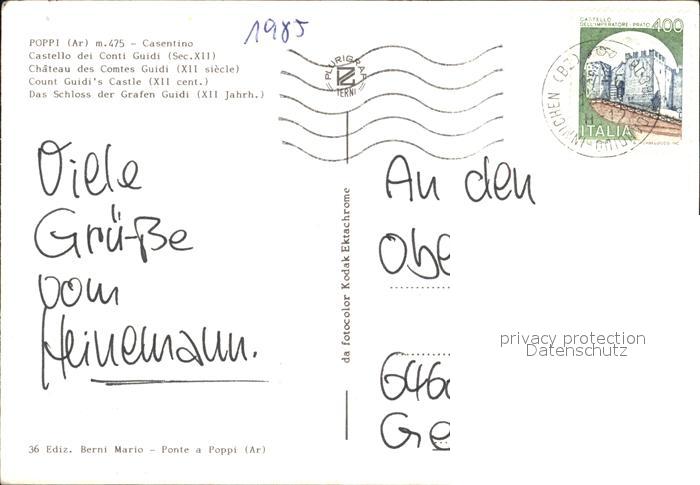 1985
POPPI (Ar) m.475 - Casentino
Castello dei Conti Guidi (Sec.XII)
Château des Comtes Guidi (XII siècle)
Count Guidi's Castle (XII cent.)
Das Schloss der Grafen Guidi (XII Jahrh.)
PLURIGRAF
TERNI
CASTELLO
DELL'IMPERATORE - PRATO 400
ITALIA
Viele
Grüße
vom
Heinemann.
da fotocolor Kodak Ektachrome
An den
Obe
646
Ge
privacy protection
Datenschutz
36 Ediz. Berni Mario - Ponte a Poppi (Ar)